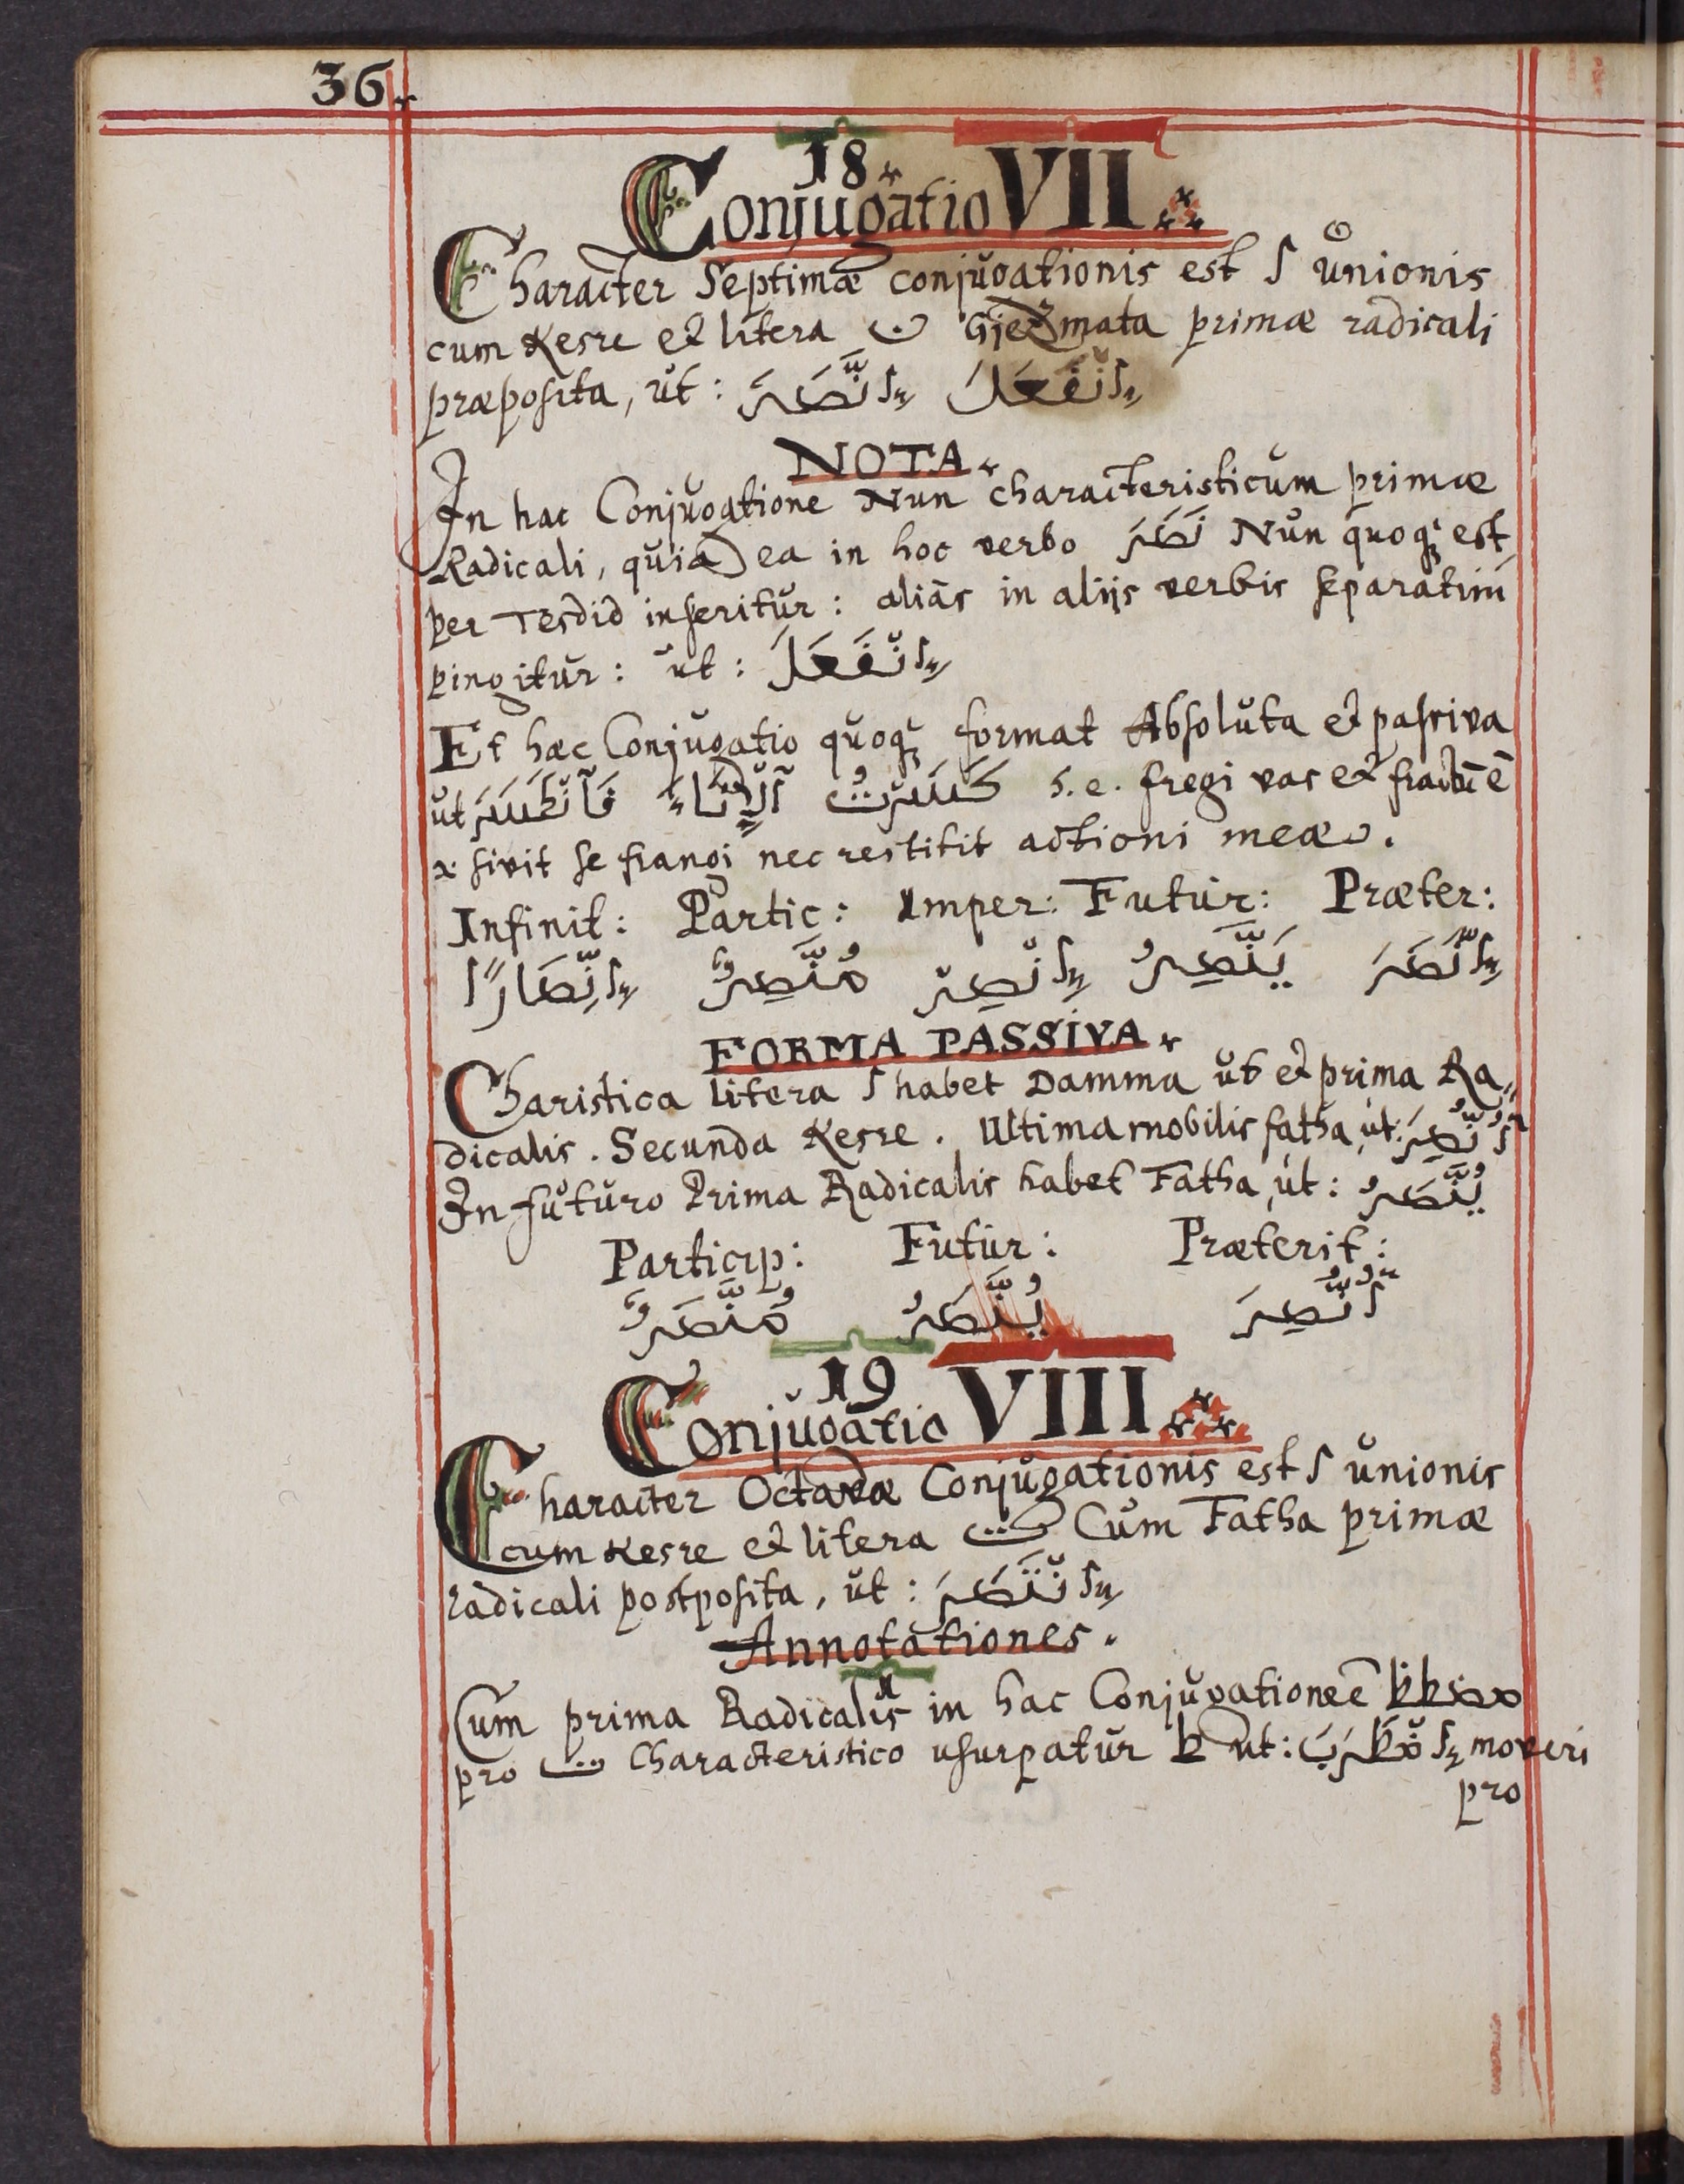 36.
18.
Conjugatio VII
Character Septimæ conjugationis est ا unionis
cum Kesre et litera ن Gjezmata primæ radicali
præposita, ut: اِنَّصَرَ اِنْفَعَلَ
NOTA.
In hac Conjugatione Nun characteristicum primæ
Radicali, quia ea in hoc verbo نَصَرَ Nun quoqꝫ est
per Tesdid inseritur: aliàs in alijs verbis separatim
pingitur: ut: اِنْفَعَلَ
Et hæc Conjugatio quoqꝫ format Absoluta et passiva
ut كَسَرْتُ ٱلْإِنَاءَ فَٱنْكَسَرَ s.e. fregi vas et fractū ē
sivit se frangi nec restitit actioni meæ.
Infinit: Partic: Imper: Futur: Præter:
اِنَّصَرَ يَنَّصِرُ اِنْصِرْ مُنَّصِرٌ اِنِّصَارًا
FORMA PASSIVA.
Charistica litera ا habet Damma ut et prima Ra„
dicalis. Secunda Kesre. Ultima mobilis fatha, ut: اُنُّصِرَ
In futuro Prima Radicalis habet Fatha, ut: يُنَّصَرُ
Particip: Futur: Præterit:
اُنُّصِرَ يُنَّصَرُ مُنَّصَرٌ
19
Conjugatio VIII
Character Octavæ Conjugationis est ا unionis
cum Kesre et litera ت Cum Fatha primæ
radicali postposita, ut: اِنْتَصَرَ
Annotationes.
Cum prima Radicalis in hac Conjugatione ē ص ض ط ظ
pro ت Characteristico usurpatur ط ut: اِضْطَرَبَ moveri
pro